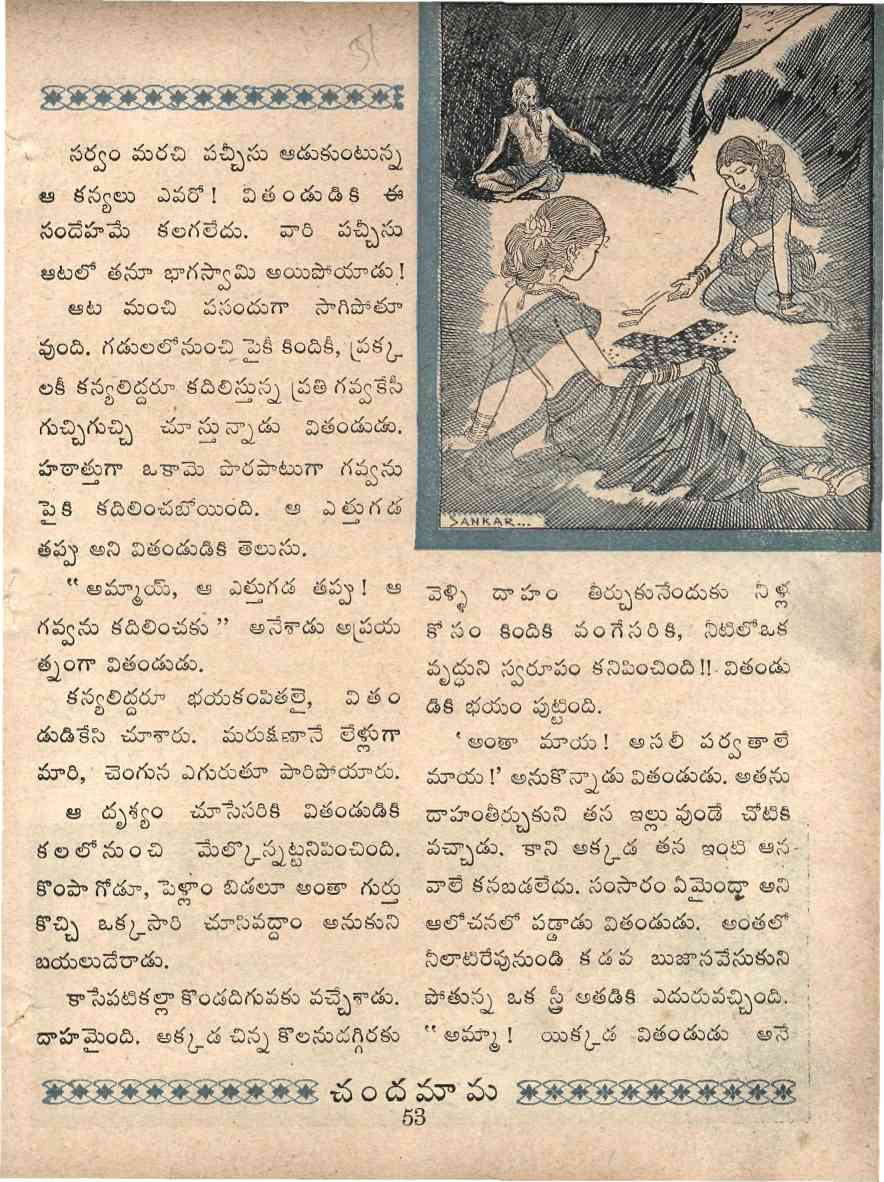 సర్వం మరచి పచ్చీసు ఆడుకుంటున్న
ఆ కన్యలు ఎవరో! వితండుడికి ఈ
సందేహమే కలగలేదు. వారి పచ్చీసు
ఆటలో తనూ భాగస్వామి అయిపోయాడు!
ఆట మంచి పసందుగా సాగిపోతూ
వుంది. గడులలోనుంచి పైకీ కిందికీ, ప్రక్క
లకీ కన్యలిద్దరూ కదిలిస్తున్న ప్రతి గవ్వకేసీ
గుచ్చిగుచ్చి చూస్తున్నాడు వితండుడు.
హఠాత్తుగా ఒకామె పొరపాటుగా గవ్వను
పైకి కదిలించబోయింది. ఆ ఎత్తుగడ
తప్పు అని వితండుడికి తెలుసు.
“అమ్మాయ్, ఆ ఎత్తుగడ తప్పు! ఆ
గవ్వను కదిలించకు” అనేశాడు అప్రయ
త్నంగా వితండుడు.
కన్యలిద్దరూ భయకంపితలై, వితం
డుడికేసి చూశారు. మరుక్షణానే లేళ్లుగా
మారి, చెంగున ఎగురుతూ పారిపోయారు.
ఆ దృశ్యం చూసేసరికి వితండుడికి
కలలోనుంచి మేల్కొన్నట్టనిపించింది.
కొంపా గోడూ, పెళ్లాం బిడలూ అంతా గుర్తు
కొచ్చి ఒక్కసారి చూసివద్దాం అనుకుని
బయలుదేరాడు.
కాసేపటికల్లా కొండదిగువకు వచ్చేశాడు.
దాహమైంది. అక్కడ చిన్న కొలనుదగ్గిరకు
SANKAR...
వెళ్ళి దాహం తీర్చుకునేందుకు నీళ్ల
కోసం కిందికి వంగేసరికి, నీటిలోఒక
వృద్ధుని స్వరూపం కనిపించింది!! వితండు
డికి భయం పుట్టింది.
‘అంతా మాయ! అసలీ పర్వతాలే
మాయ!’ అనుకొన్నాడు వితండుడు. అతను
దాహంతీర్చుకుని తన ఇల్లు వుండే చోటికి
వచ్చాడు. కాని అక్కడ తన ఇంటి ఆన-
వాలే కనబడలేదు. సంసారం ఏమైందా అని
ఆలోచనలో పడ్డాడు వితండుడు. అంతలో
నీలాటిరేవునుండి కడవ బుజానవేసుకుని
పోతున్న ఒక స్త్రీ అతడికి ఎదురువచ్చింది.
“అమ్మా! యిక్కడ వితండుడు అనే
చందమామ
53